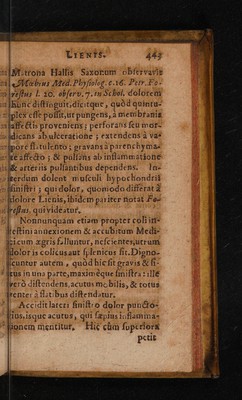 LIENIS. 443
Matrona Hallis Saxonum observavit
Mœbius Med. Physiolog. c. 16. Petr. Fo-
restus l. 20. observ. 7. in Schol. dolorem
hunc distinguit, dicitque, quòd quintu-
plex esse possit, ut pungens, à membranis
affectis proveniens; perforans seu mor-
dicans ab ulceratione; extendens à va-
pore flatulento; gravans à parenchyma-
te affecto; & pulsans ab inflammatione
& arteriis pulsantibus dependens. In-
terdum dolent musculi hypochondrii
sinistri; qui dolor, quomodo differat à
dolore Lienis, ibidem pariter notat Fo-
restus. qui videatur.
Nonnunquam etiam propter coli in-
testini annexionem & accubitum Medi-
cum ægris falluntur, nescientes, utrum
dolor is colicus aut splenicus sit. Digno-
scuntur autem, quòd hic sit gravis & si-
tus in una parte, maximéque sinistra: ille
verò distendens, acutus mobilis, & totus
venter à flatibus distendatur.
Accidit lateri sinistro dolor puncto-
rius, isque acutus, qui sæpius inflamma-
tionem mentitur. Hic cùm superiora
petit